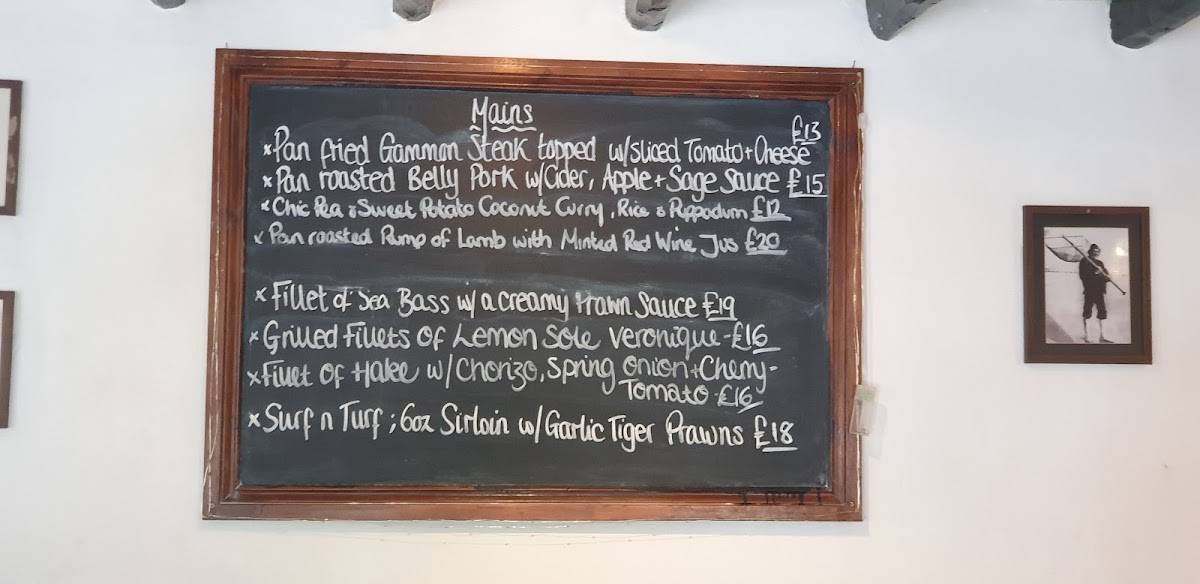 Mains
£13
*Pan fried Gammon Steak topped w/sliced Tomato+Cheese
*Pan roasted Belly Pork w/Cider, Apple+Sage Sauce £15
*Chic Pea & Sweet Potato Coconut Curry, Rice & Puppodum £12
x Pan roasted Rump of Lamb with Minted Red Wine Jus £20
x Fillet of Sea Bass w/ a creamy Prawn Sauce £19
x Grilled Fillets of Lemon Sole Veronique-£16
x Fillet of Hake w/Chorizo, Spring Onion+Cherry-
Tomato-£16
x Surf n Turf; 6oz Sirloin w/Garlic Tiger Prawns £18